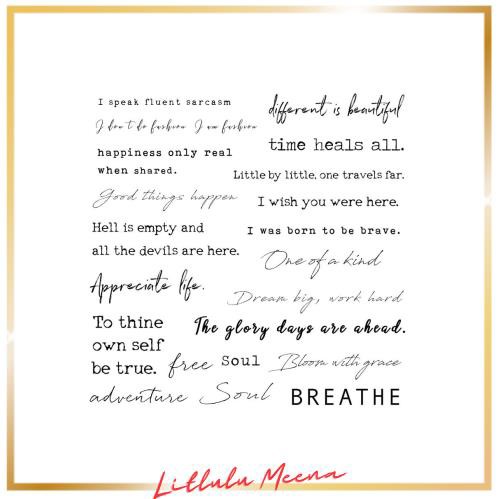 I speak fluent sarcasm
different is beautiful
I don't do fashion I am fashion
time heals all.
happiness only real
when shared.
Little by little, one travels far.
Good things happen
I wish you were here.
Hell is empty and
all the devils are here.
I was born to be brave.
One of a kind
Appreciate life.
Dream big, work hard
To thine
own self
be true.
The glory days are ahead.
free Soul
Bloom with grace
adventure Soul
BREATHE
Litlulu Meena